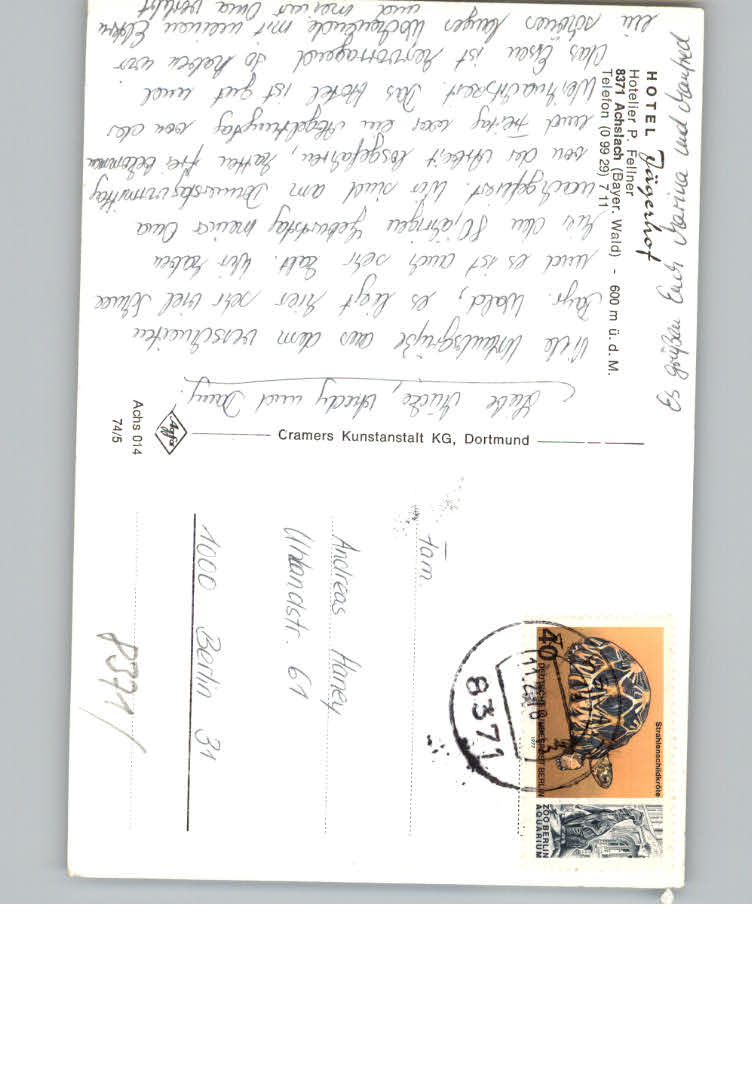 HOTEL Jägerhof
Hotelier P. Fellner
8371 Achslach (Bayer. Wald) - 600 m ü. d. M.
Telefon (0 99 29) 7 11
Liebe Mücke, Fredy und Dany!
Viele Urlaubsgrüße aus dem verschneiten
Bayr. Wald, es liegt hier sehr viel Schnee
und es ist auch sehr kalt. Wir haben
hier den 80 jährigen Geburtstag meiner Oma
nachgefeiert. Wir sind am Donnerstagvormittag
von der Arbeit losgefahren, hatten frei bekommen
und Freitag war ein Abgeltungstag von der
Weihnachtszeit. Das Hotel ist gut und
das Essen ist hervorragend so haben wir
ein schönes langes Wochenende mit meinen Eltern
und meiner Oma verlebt
Es grüßen Euch Marina und Manfred
Cramers Kunstanstalt KG, Dortmund
Agfa
Achs 014
74/5
Fam.
Andreas Haney
Uhlandstr. 61
1000 Berlin 31
8371/
Strahlenschildkröte
40
DEUTSCHE BUNDESPOST BERLIN
1977
ZOO BERLIN
AQUARIUM
8371